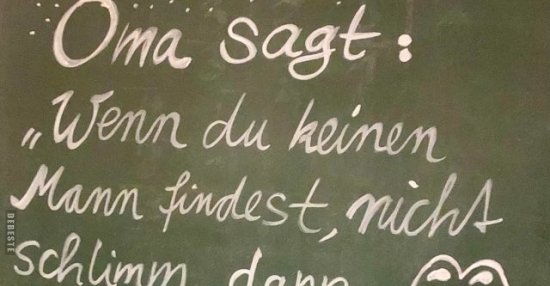 Oma sagt:
„Wenn du keinen
Mann findest, nicht
schlimm, dann
BEBESTE